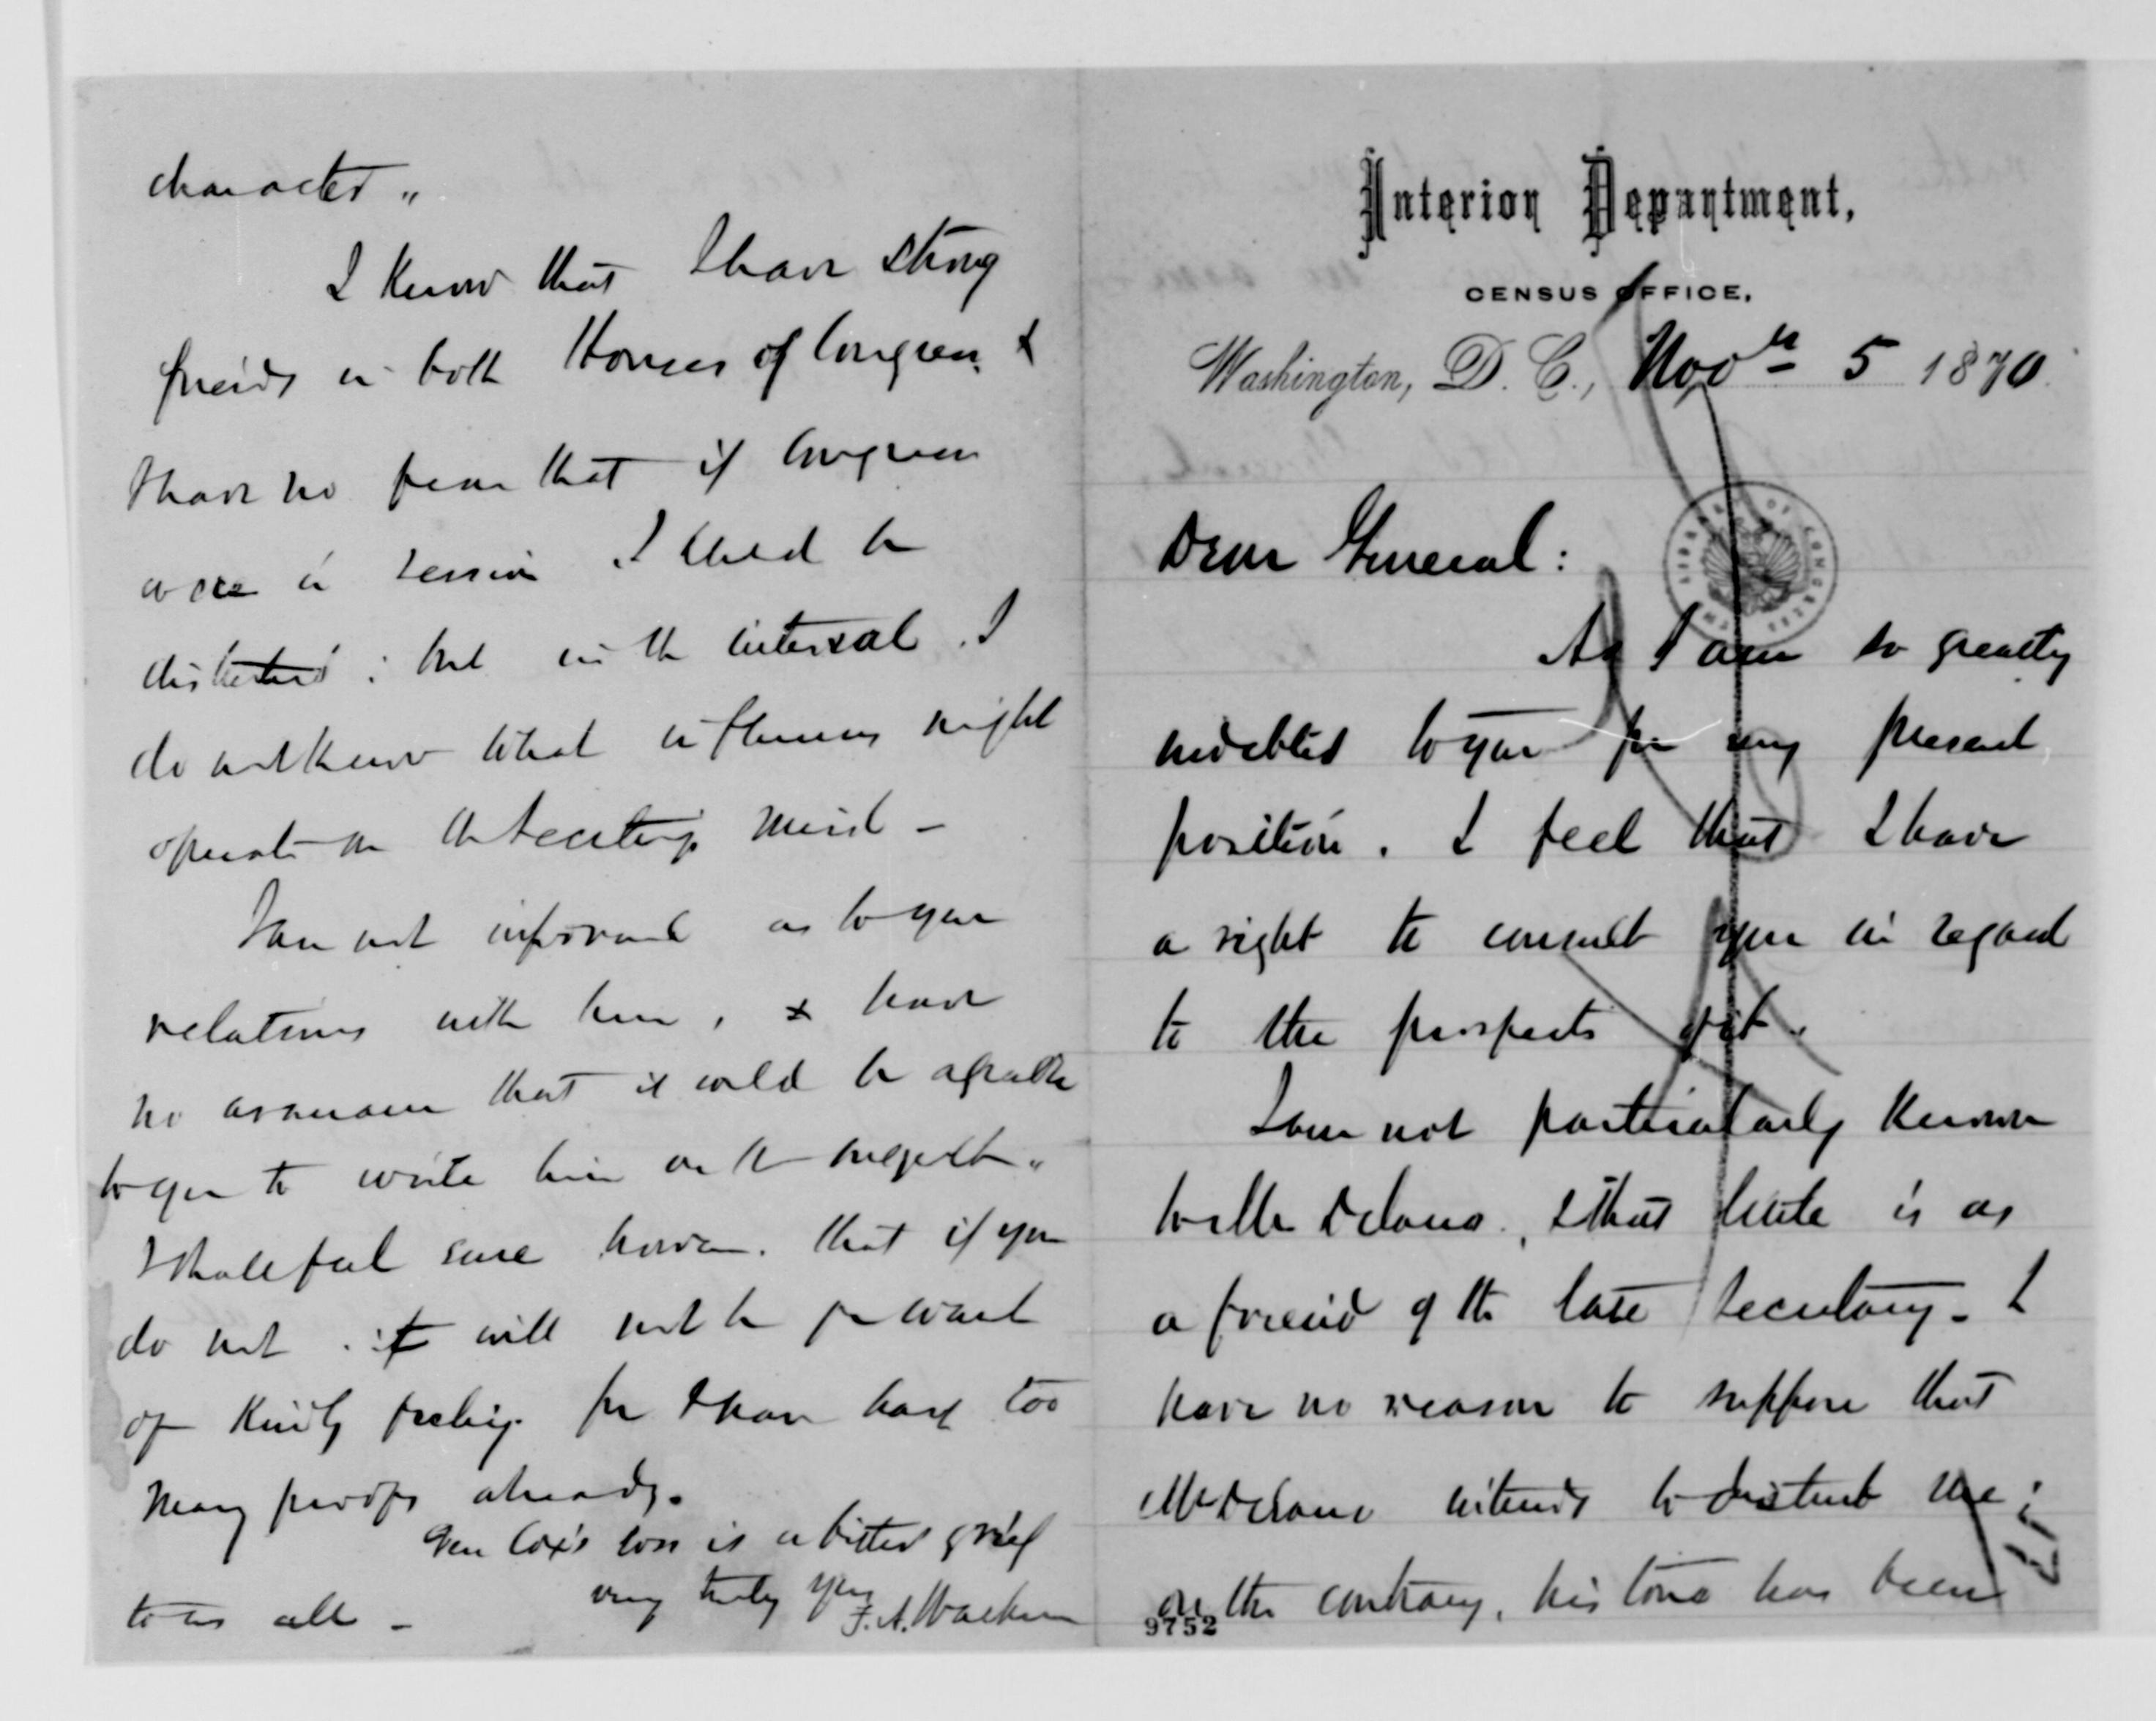 Interior Department,
CENSUS OFFICE,
Washington, D. C., Novr 5 1870.
LIBRARY OF CONGRESS
Dear General:
As I am so greatly
indebted to you for my present
position. I feel that I have
a right to consult you in regard
to the prospects of it.
I am not particularly known
to Mr Delano, & that little is as
a friend of the late Secretary - I
have no reason to suppose that
Mr Delano intends to disturb me;
on the contrary, his tone has been
9752
character.
I know that I have strong
friends in both Houses of Congress &
I have no fear that if Congress
were in session I should be
disturbed; but in the interval I
do not know what influences might
operate on the Secretary's mind -
I am not informed as to your
relations with him, & have
no assurance that it would be agreeable
to you to write him on the subject.
I shall feel sure however, that if you
do not, it will not be for want
of kindly feeling. for I have had too
many proofs already.
Gen Cox's loss is a bitter grief
to us all -
very truly yrs
F. A. Walker